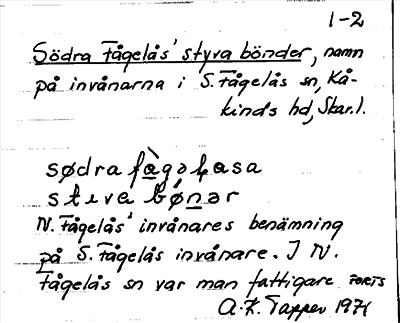 1-2
Södra Fågelås' styva bönder, namn
på invånarna i S. Fågelås sn, Kå-
kinds hd, Skar.l.
sødra fàgəlasa
stiva bónər
N. Fågelås' invånares benämning
på S. Fågelås invånare. I N.
Fågelås sn var man fattigare FORTS
1971